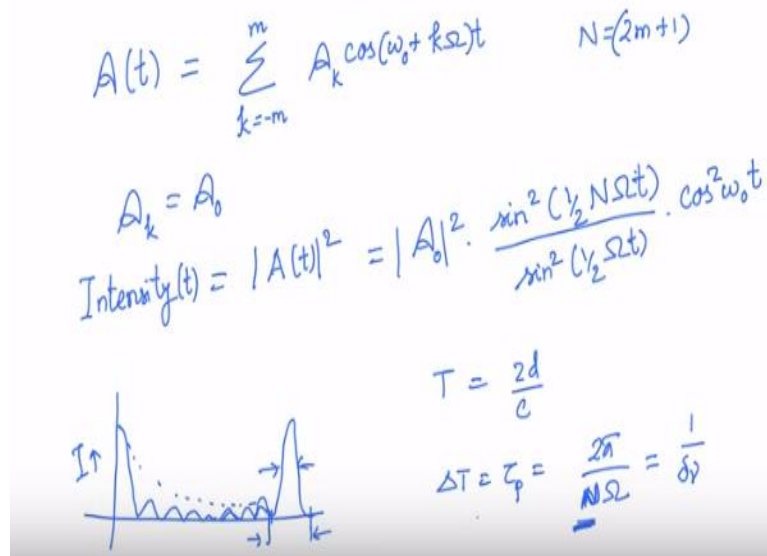 A(t) = m Σ k=-m A_k cos(ω₀+kΩ)t N=(2m+1)
A_k = A₀
Intensity(t) = |A(t)|² = |A₀|² · sin²(½NΩt) / sin²(½Ωt) · cos²ω₀t
T = 2d/c
I↑
ΔT = τp = 2π/NΩ = 1/δν